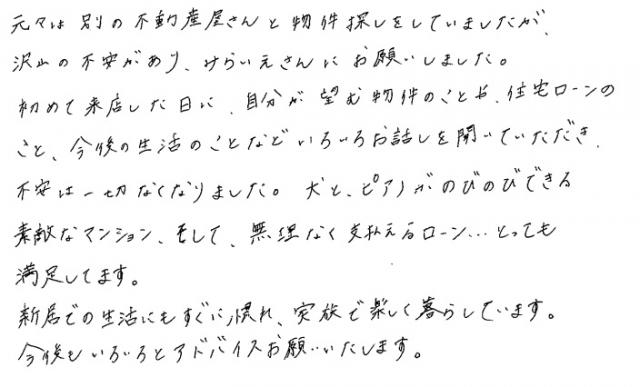 元々は別の不動産屋さんと物件探しをしていましたが、
沢山の不安があり、けらいえさんにお願いしました。
初めて来店した日に、自分が望む物件のことや、住宅ローンの
こと、今後の生活のことなどいろいろお話しを聞いていただき、
不安は一切なくなりました。犬と、ピアノがのびのびできる
素敵なマンション、そして、無理なく支払えるローン…とっても
満足してます。
新居での生活にもすぐに慣れ、家族で楽しく暮らしています。
今後もいろいろとアドバイスお願いいたします。